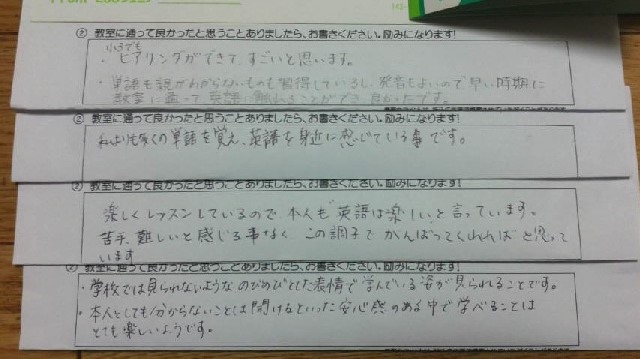 ② 教室に通って良かったと思うことありましたら、お書きください。励みになります!
小3でも
・ヒアリングができて、すごいと思います。
・単語も親がわからないものも習得しているし、発音もよいので早い時期に
教室に通って英語に触れることができ、良かったです。
② 教室に通って良かったと思うことありましたら、お書きください。励みになります!
私よりも多くの単語を覚え、英語を身近に感じている事です。
② 教室に通って良かったと思うことありましたら、お書きください。励みになります!
楽しくレッスンしているので、本人も"英語は楽しい"と言っています。
苦手、難しいと感じる事なく、この調子でがんばってくれればと思って
います
② 教室に通って良かったと思うことありましたら、お書きください。励みになります!
・学校では見られないようなのびのびとした表情で学んでいる姿が見られることです。
・本人としても分からないことは聞けるといった安心感のある中で学べることは
とても楽しいようです。